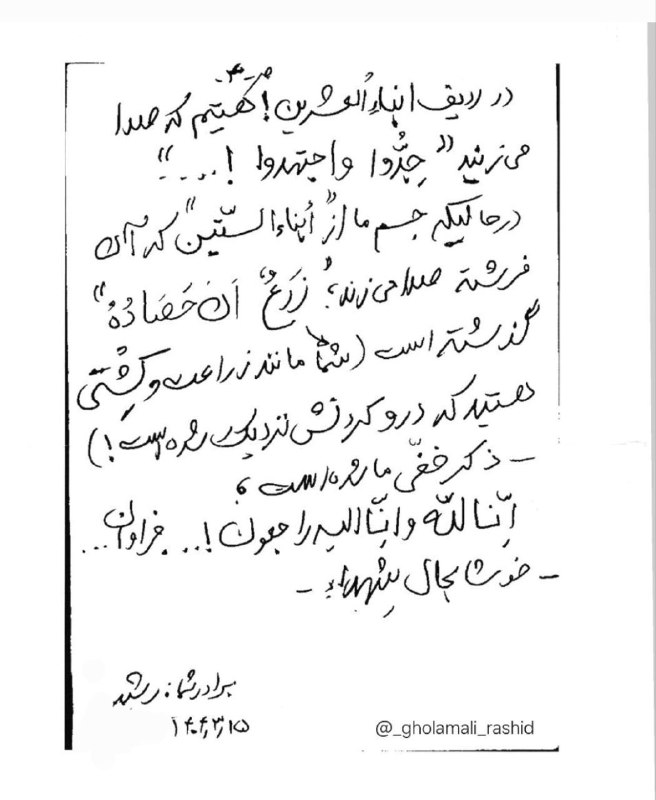 -۳-
در ردیف ابناءُالعشرین! هستیم که صدا
می‌زنند "جِدُّوا واجتهدوا !...."
درحالیکه جسم ما از "أبناءالستّین" که آن
فرشته صدا می‌زند؛ "زَرَعٌ آنَ حَصَادُهُ"
گذشته است (شما مانند زراعت و کِشتی
هستید که درو کردنش نزدیک شده است!)
– ذکر خفّی ما شده است؛
إنّا لله وانّا الیه راجعون!... فراوان...
– خوشا بحال شهداء –
برادر شما: رشید
۱۴۰۴,۳,۱۵
@_gholamali_rashid